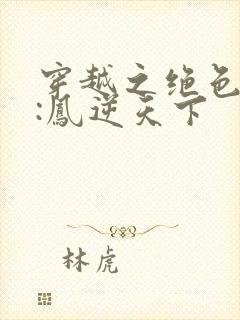 穿越之绝色
:鳳逆天下
林虎